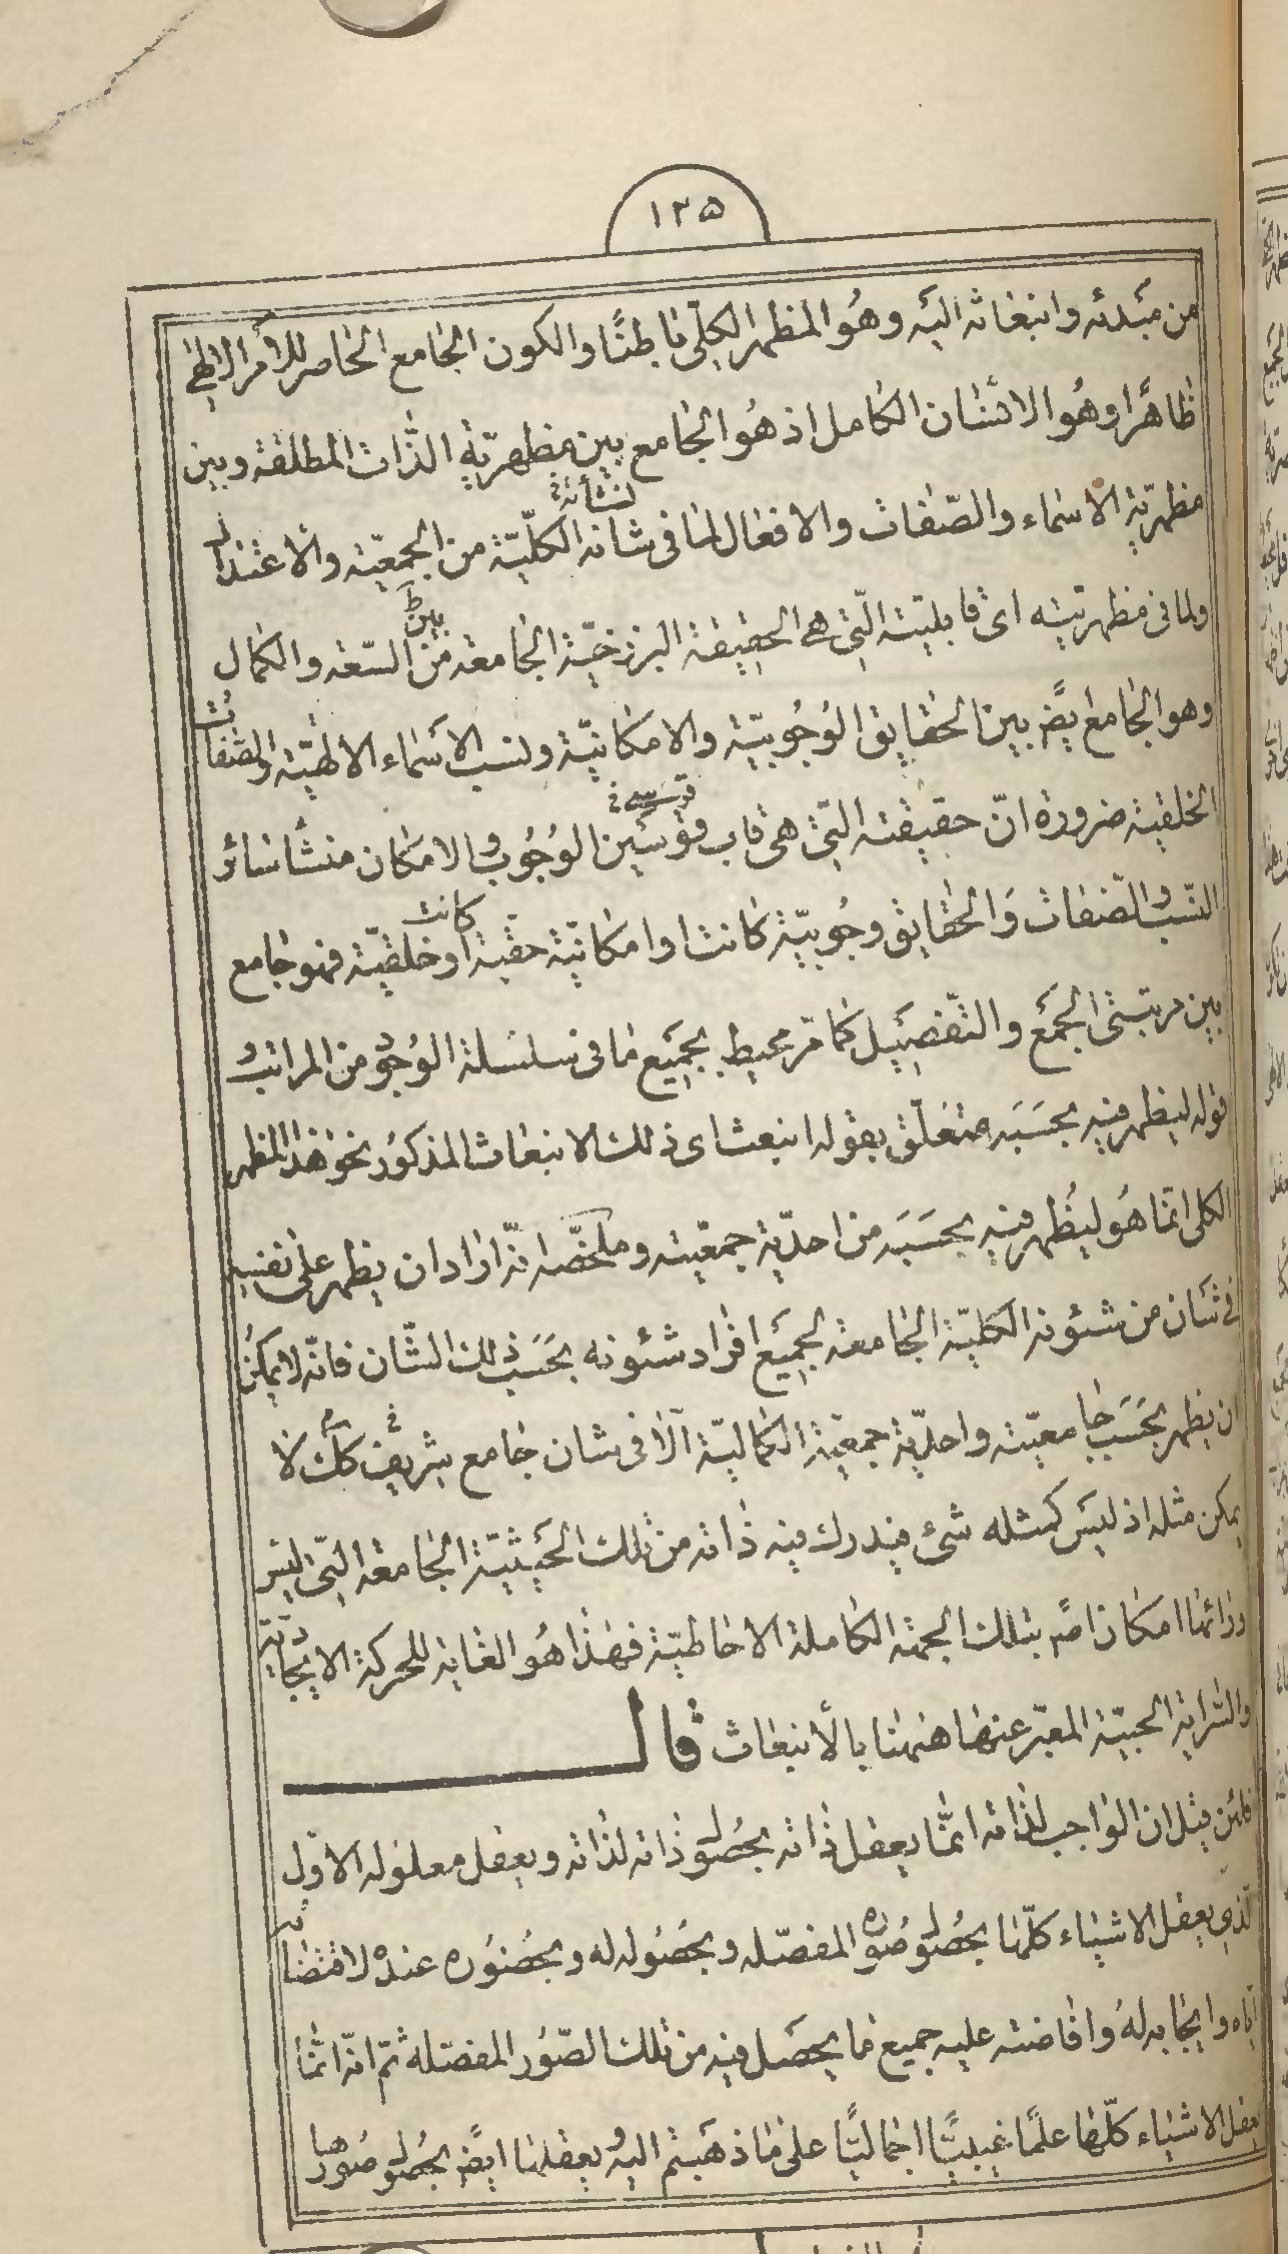 ١٢٥
من مبدئه وانبعاثه اليه وهو المظهر الكلّى باطنًا والكون الجامع الحاصر للأمر الالهى
ظاهرًا وهو الانسان الكامل اذ هو الجامع بين مظهريّة الذّات المطلقة وبين
لنشأته
مظهريّة الاسماء والصّفات والافعال لما فى شانه الكلّيّة من الجمعيّة والاعتدال
بين
ولما فى مظهريّته اى قابليّته الّتى هى الحقيقة البرزخيّة الجامعة من السّعة والكمال
وهو الجامع ايضً بين الحقايق الوجوبيّة والامكانيّة ونسب الاسماء الالهيّة والصفات
الخلقية ضرورة انّ حقيقته الّتى هى قاب قوسين الوجوب والامكان منشأ سائر
النّسب والصّفات والحقايق وجوبيّة كانت او امكانيّة حقّية كانت او خلقيّة فهو جامع
بين مرتبتى الجمع والتّفصيل كما مرّ محيط بجميع ما فى سلسلة الوجود من المراتب و
قوله ليظهر فيه بحسبه متعلّق بقوله انبعث اى ذلك الانبعاث المذكور نحو هذا المظهر
الكلى انّما هو ليظهر فيه بحسبه من احديّة جمعيّته وملخّصه انّه اراد ان يظهر على نفسه
فى شان من شئونه الكليّة الجامعة لجميع افراد شئونه بحسب ذلك الشّان فانّه لا يمكن
ان يظهر بحسب جامعيّته واحديّة جمعيّة الكماليّة الّا فى شان جامع شريف كلّى لا
يمكن مثله اذ ليس كمثله شئ فيدرك فيه ذاته من تلك الحيثيّة الجامعة الّتى ليس
ورائها امكان اصً بتلك الجهة الكاملة الاحاطيّة فهذا هو الغاية للحركة الايجاديّة
والسّراية الحبيّة المعبّر عنها هيهنا بالأنبعاث قال
فلئن قيل ان الواجب لذاته انّما يعقل ذاته بحصول ذاته لذاته ويعقل معلوله الاوّل
لّذى يعقل الاشياء كلّها بحصول صوره المفصّله وبحصوله له وبحضوره عنده لاقتضائه
ايّاه وايجابه له وافاضته عليه جميع ما يحصل فيه من تلك الصّور المفصّله ثمّ انّه انّما
يعقل الاشياء كلّها علمًا غيبيًّا اجماليًّا على ما ذهبتم اليه ويعقلها ايضً بحصول صورها